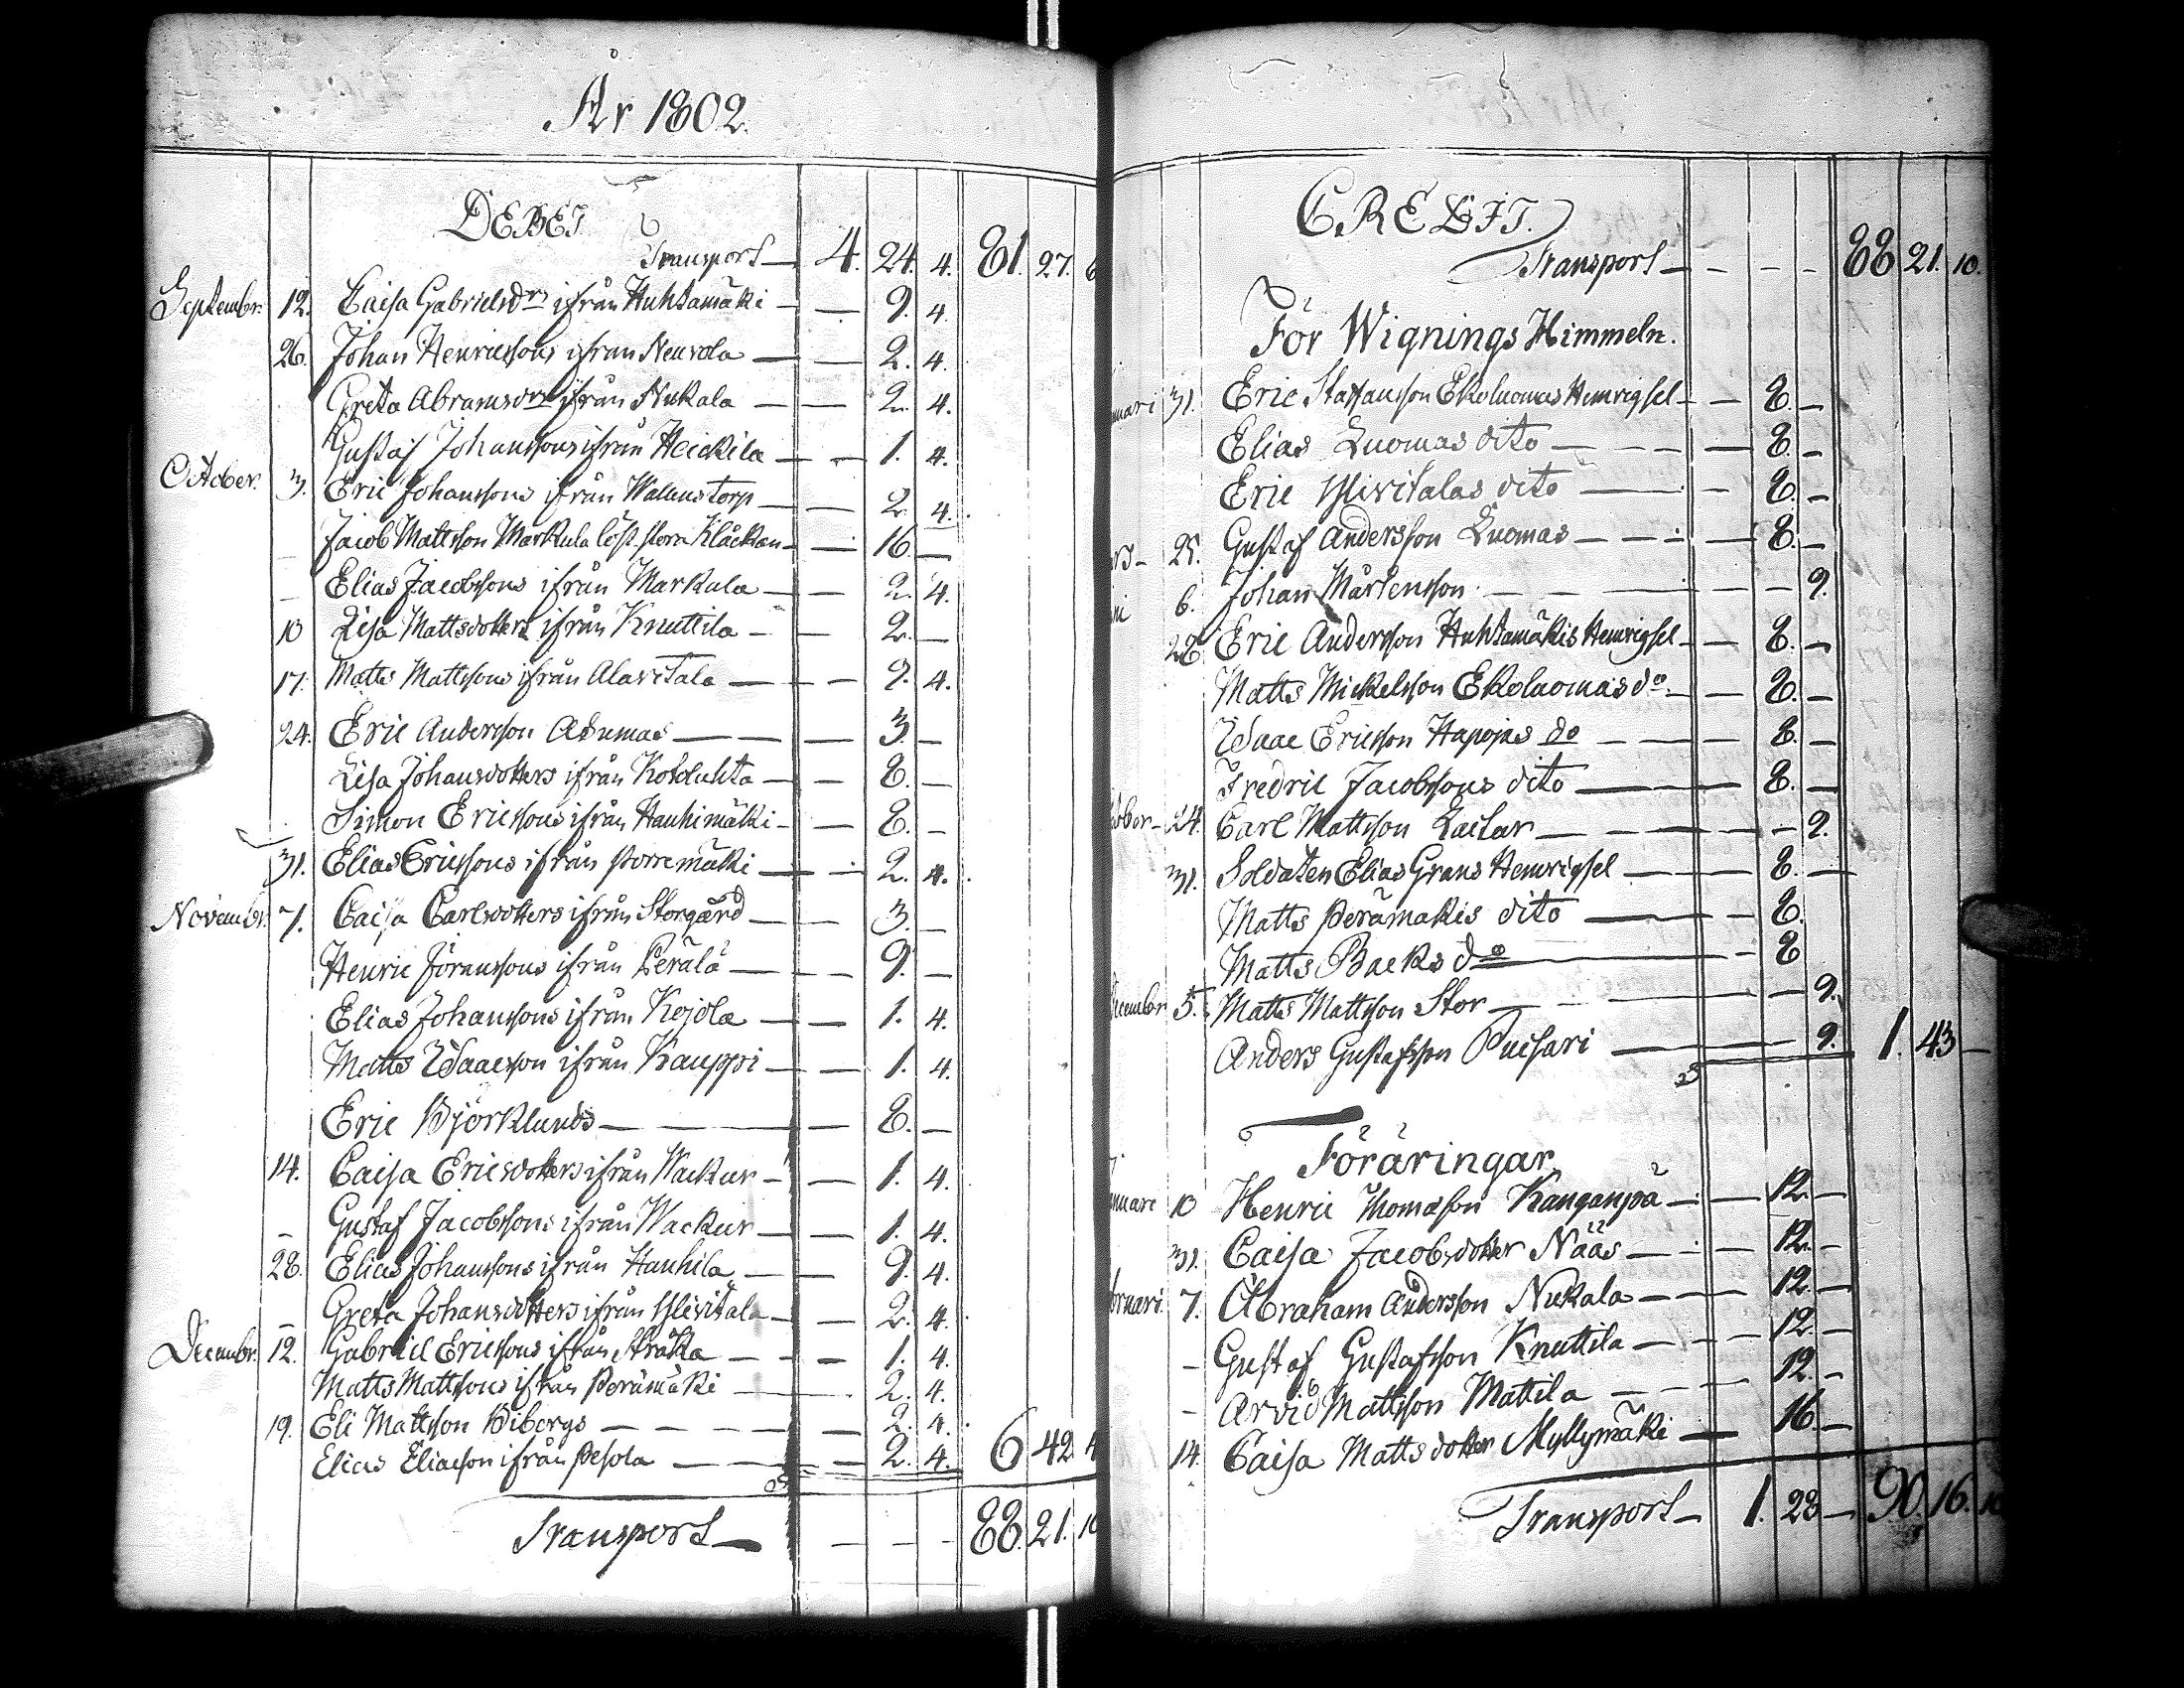 År 1802.
DEBET
Transport — 4. 24. 4. 81. 27. 6
Septembr. 12. Caisa Gabrielsdrs ifrån Huhtamäki — — 9. 4.
26. Johan Henricssons ifrån Neurola — — 2. 4.
Greta Abramsdrs ifrån Nukala — — 2. 4.
Gustaf Johanssons ifrån Heickila — — 1. 4.
October. 3. Eric Johanssons ifrån Wallenstorp — — 2. 4.
Jacob Mattsson Markula löst stora Kläckan — — 16 —
— Elias Jacobssons ifrån Markula — — 2. 4.
10 Lisa Mattsdotters ifrån Knuttila — — 2. —
17. Matts Mattssons ifrån Alavitala — — 9. 4.
24. Eric Andersson — — 3. —
Lisa Johansdotters ifrån Kotoluhta — — 8. —
Simon Ericssons ifrån Hauhimäki — — 8. —
31. Elias Ericssons ifrån Porremäki — — 2. 4.
Novembr. 7. Caisa Carlsdotters ifrån Storgård — — 3. —
Henric Joranssons ifrån Perälä — — 9. —
Elias Johanssons ifrån Kojola — — 1. 4.
Matts Isaacsson ifrån Kauppi — — 1. 4.
Eric Björklunds — — 8. —
14. Caisa Ericsdotters ifrån Wackur — — 1. 4.
— Gustaf Jacobssons ifrån Wackur — — 1. 4.
28. Elias Johanssons ifrån Hauhila — — 9. 4.
— Greta Johansdotters ifrån Ylivitala — — 2. 4.
Decembr. 12. Gabriel Ericssons ifrån — — 1. 4.
Matts Mattssons ifrån Perämäki — — 2. 4.
19. Eli Mattsson Wiborgs — — 2. 4.
Elias Eliasson ifrån Pesola — — 2. 4. 6 42. 4
Transport — — — — 88. 21. 10
CREDIT.
Transport — — — — 88 21. 10.
För Wignings Himmeln.
nuari 31. Eric Staffansson Ekoluomas Hemvigsel — — 8. —
Elias Luomas dito — — 8. —
Eric Ylivitalas dito — — 8. —
rs — 25. Gustaf Andersson Luomas — — 8. —
ni 6. Johan Mårtensson — — — 9.
28 Eric Andersson Huhtamäkis Hemvigsel — — 8. —
Matts Mickelsson Ekoluomas do — — 8. —
Isaac Ericsson Hapojas do — — 8. —
Fredric Jacobssons dito — — 8. —
tober — 24. Carl Mattsson Laitar — — — 9.
31. Soldaten Elias Grans Hemvigsel — — 8. —
Matts Perämäkis dito — — 8.
Matts Backs do — — 8
ecembr 5. Matts Mattsson Stor — — — 9.
Anders Gustafsson Puisari — — 9. 1. 43 —
Föräringar
nuari 10 Henric Thomasson Kanganpä — — 12. —
31. Caisa Jacobsdotter Nääs — — 12. —
bruari 7. Abraham Andersson Nukala — — 12. —
— Gustaf Gustafsson Knuttila — — 12. —
— Arvid Mattsson Mattila — — 12. —
14. Caisa Mattsdotter Myllymäki — 16 —
Transport — 1. 28 — 90. 16. 10